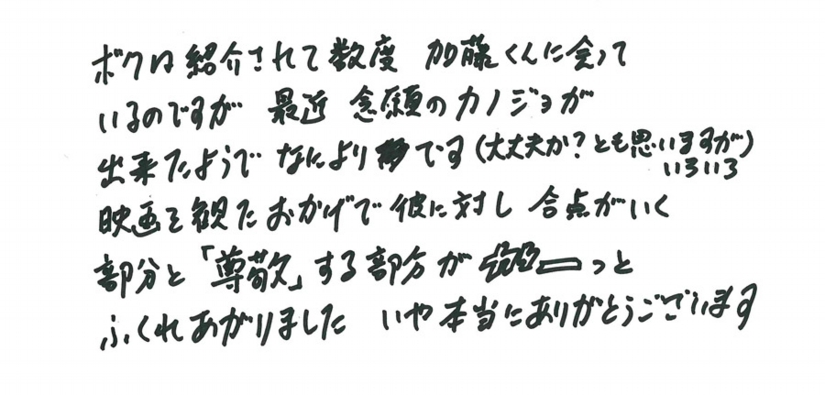 ボクは紹介されて数度 加藤くんに会って
いるのですが 最近 念願のカノジョが
出来たようで なにより です(大丈夫か?とも思いますが)
いろいろ
映画を観たおかげで彼に対し 合点がいく
部分と「尊敬」する部分が っと
ふくれあがりました いや本当にありがとうございます